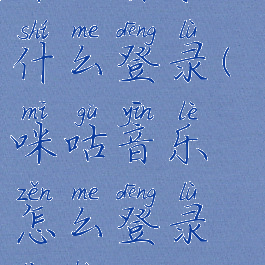 shí me dēng lù
什么登录(
mī gū yīn lè
咪咕音乐
zěn me dēng lù
怎么登录